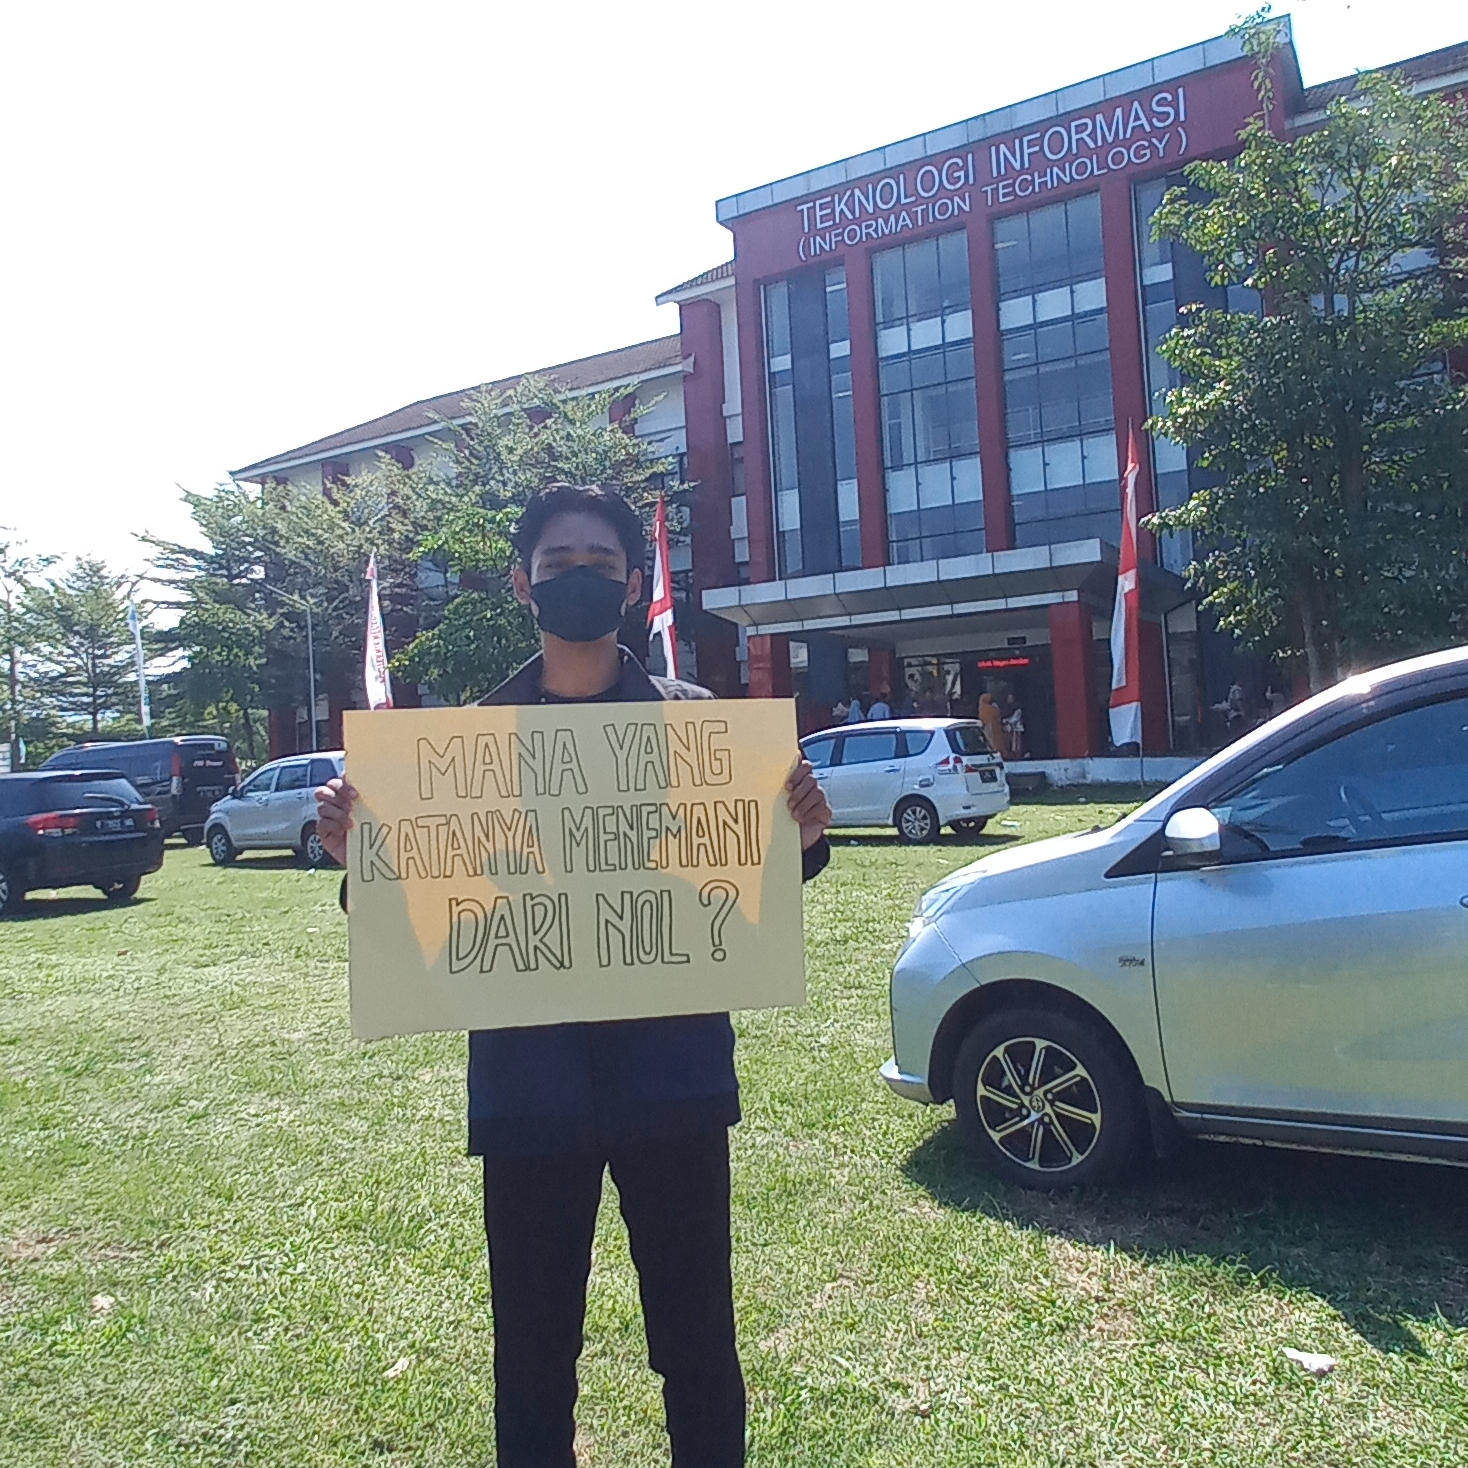 TEKNOLOGI INFORMASI
(INFORMATION TECHNOLOGY)
MANA YANG
KATANYA MENEMANI
DARI NOL?